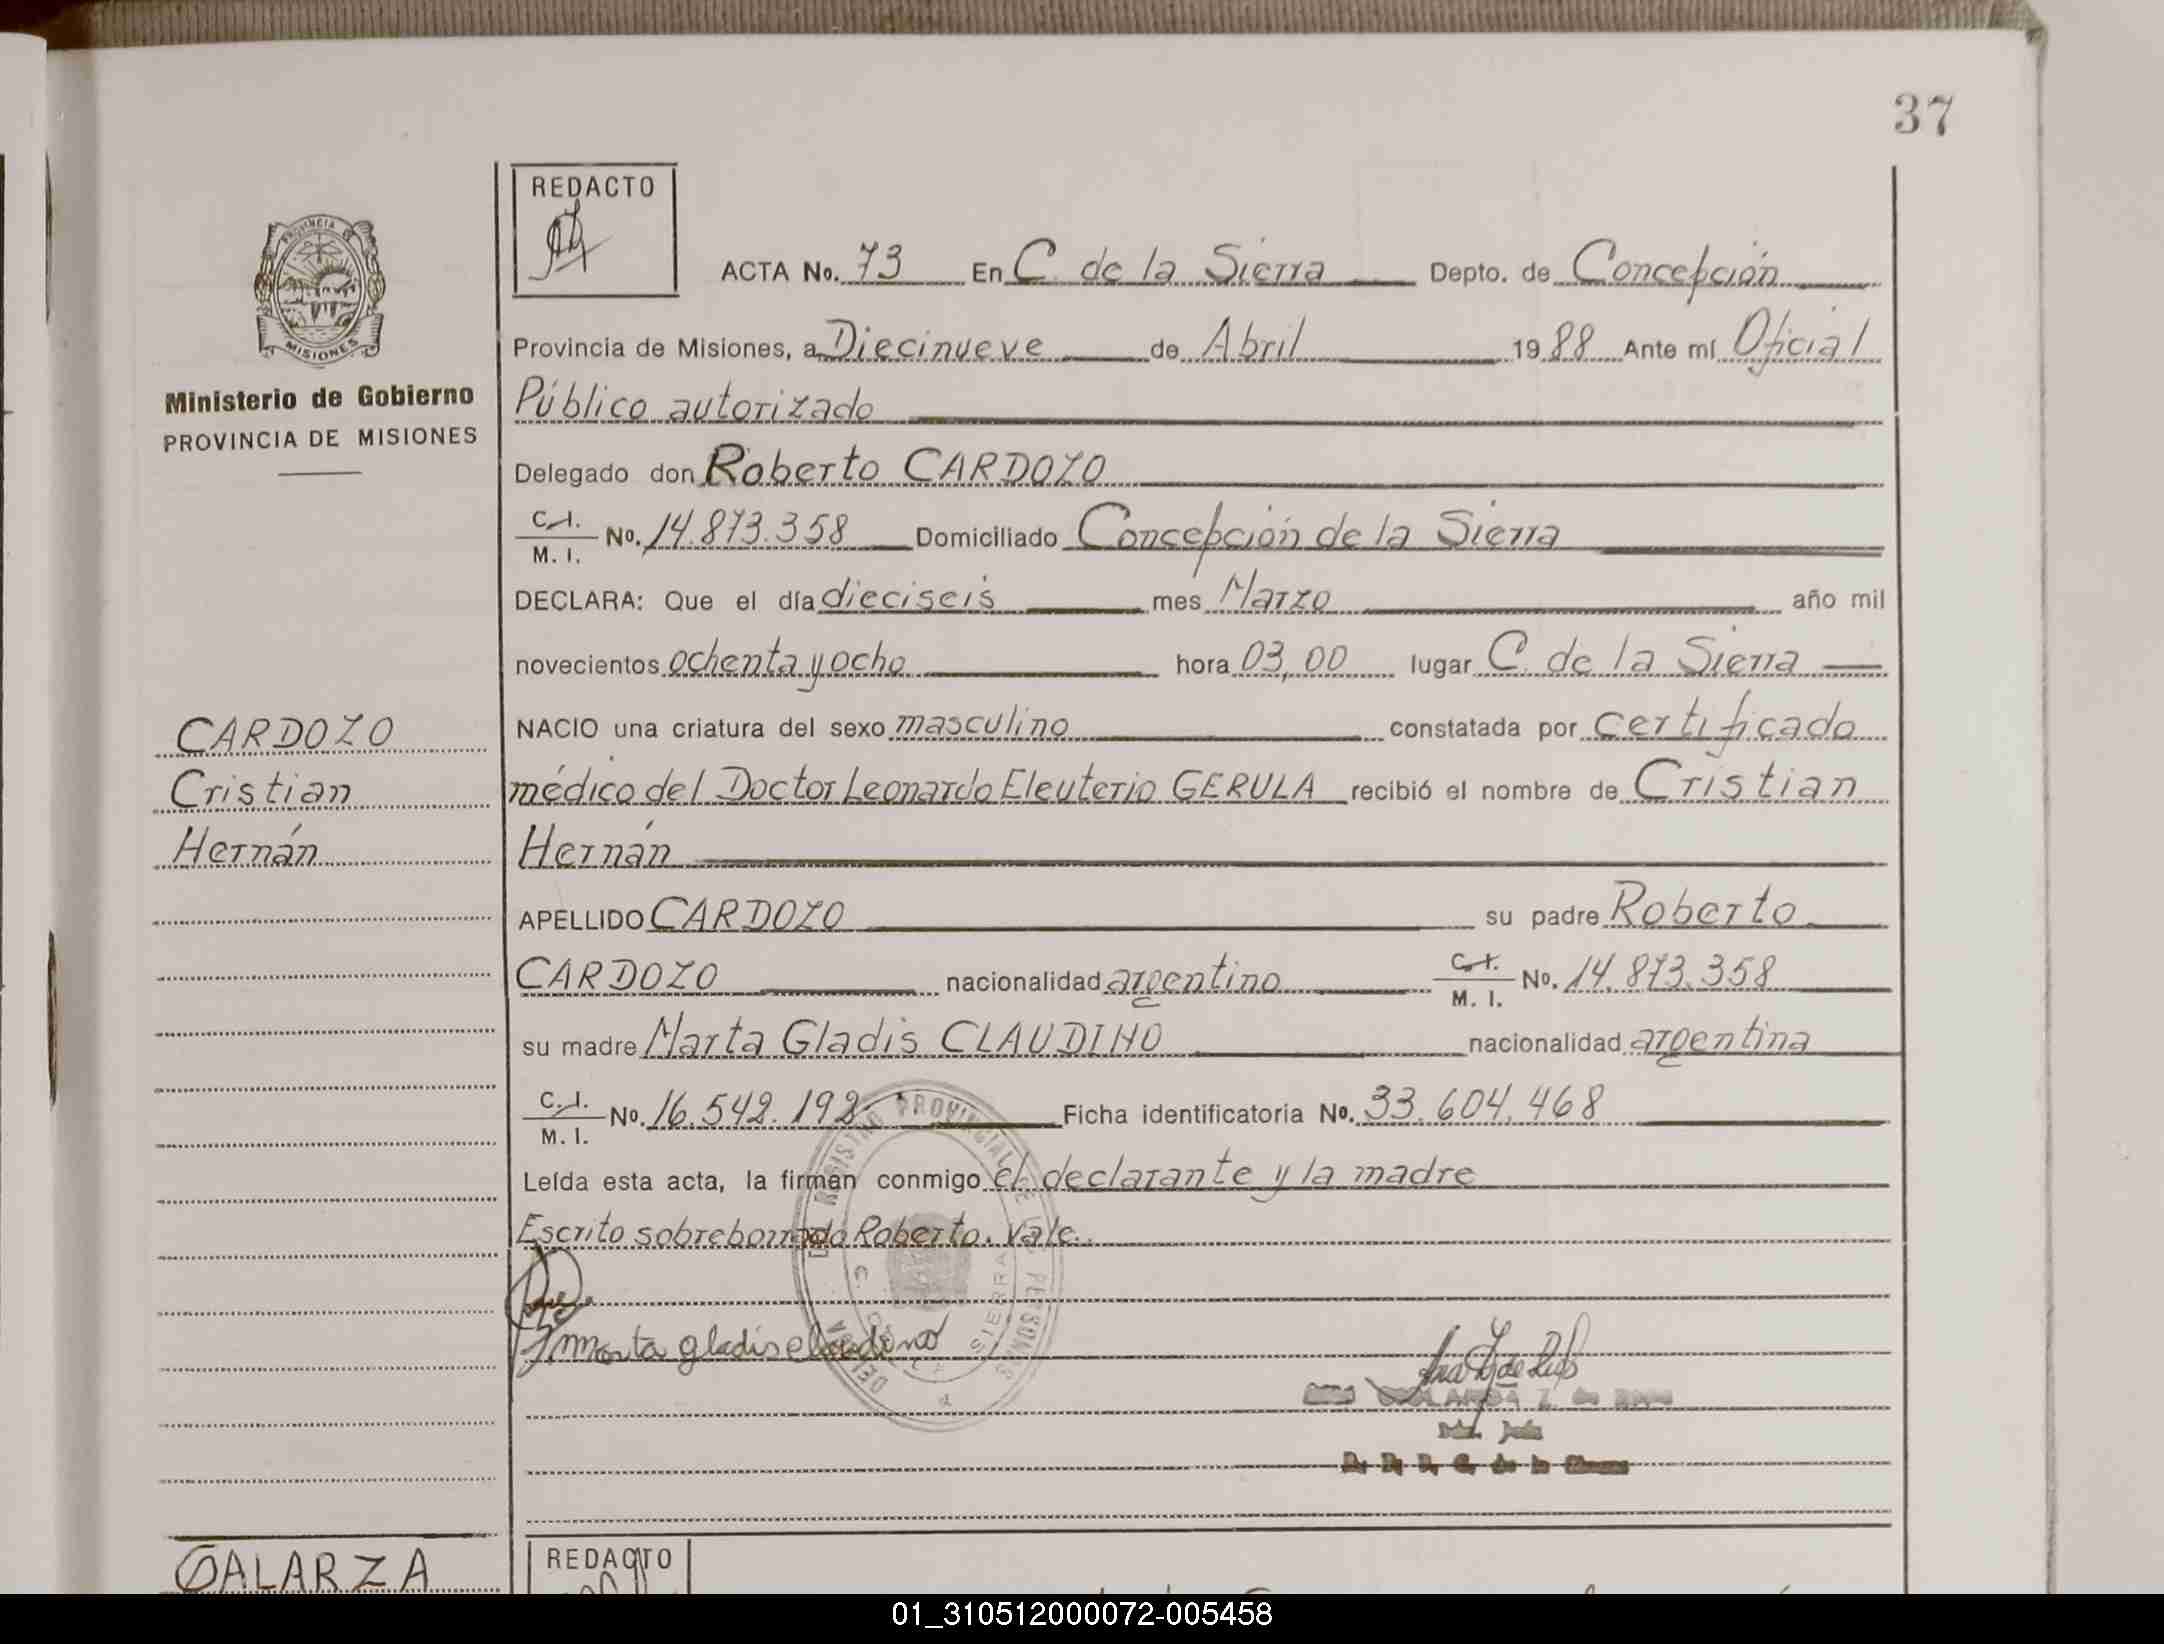 37
REDACTO
ACTA No. 73 En C. de la Sierra Depto. de Concepción
Provincia de Misiones, a Diecinueve de Abril 1988 Ante mí Oficial
Público autorizado
Delegado don Roberto CARDOZO
C. I. M. I. No. 14.873.358 Domiciliado Concepción de la Sierra
DECLARA: Que el día dieciseis mes Marzo año mil
novecientos ochenta y ocho hora 03,00 lugar C. de la Sierra
NACIO una criatura del sexo masculino constatada por certificado
médico del Doctor Leonardo Eleuterio GERULA recibió el nombre de Cristian
Hernán
APELLIDO CARDOZO su padre Roberto
CARDOZO nacionalidad argentino C. I. M. I. No. 14.873.358
su madre Marta Gladis CLAUDINO nacionalidad argentina
C. I. M. I. No. 16.542.192 Ficha identificatoria No. 33.604.468
Leída esta acta, la firman conmigo el declarante y la madre
Escrito sobreborrado Roberto. Vale.
Marta gladis claudino
REGISTRO PROVINCIAL DE PERSONAS
SIERRA
PROVINCIA
MISIONES
Ministerio de Gobierno
PROVINCIA DE MISIONES
CARDOZO
Cristian
Hernán
GALARZA
REDACTO
01_310512000072-005458